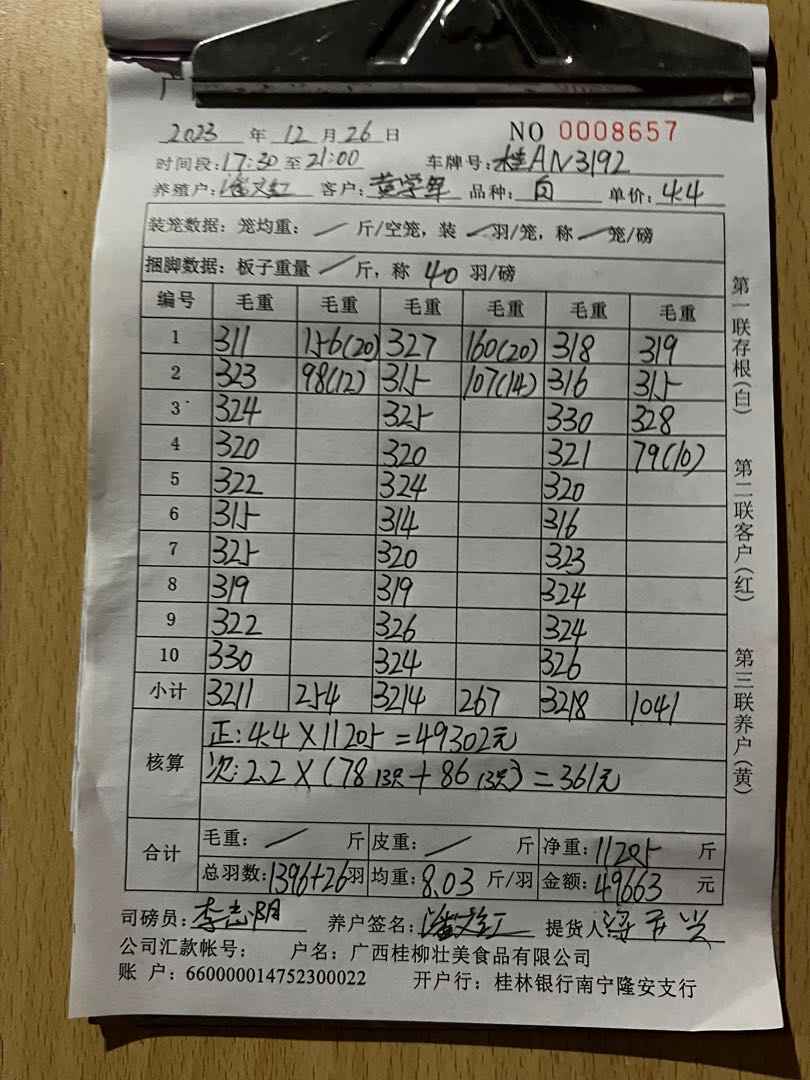 2023 年 12 月 26 日 NO 0008657
时间段:17:30 至 21:00 车牌号:桂AN3192
养殖户:潘文红 客户:黄学军 品种:白 单价:4.4
装笼数据:笼均重: / 斤/空笼,装 / 羽/笼,称 / 笼/磅
捆脚数据:板子重量 / 斤,称 40 羽/磅
编号 毛重 毛重 毛重 毛重 毛重 毛重
1 311 156(20) 327 160(20) 318 319
2 323 98(12) 315 107(14) 316 315
3 324 325 330 328
4 320 320 321 79(10)
5 322 324 320
6 315 314 316
7 325 320 323
8 319 319 324
9 322 326 324
10 330 324 326
小计 3211 254 3214 267 3218 1041
核算 正:4.4×11205=49302元
次:2.2×(78 13只+86 13只)=361元
合计 毛重: / 斤 皮重: / 斤 净重:11205 斤
总羽数:1396+26羽 均重:8.03 斤/羽 金额:49663 元
司磅员:李志阴 养户签名:潘文红 提货人
公司汇款帐号: 户名:广西桂柳壮美食品有限公司
账 户:660000014752300022 开户行:桂林银行南宁隆安支行
第一联存根(白)
第二联客户(红)
第三联养户(黄)